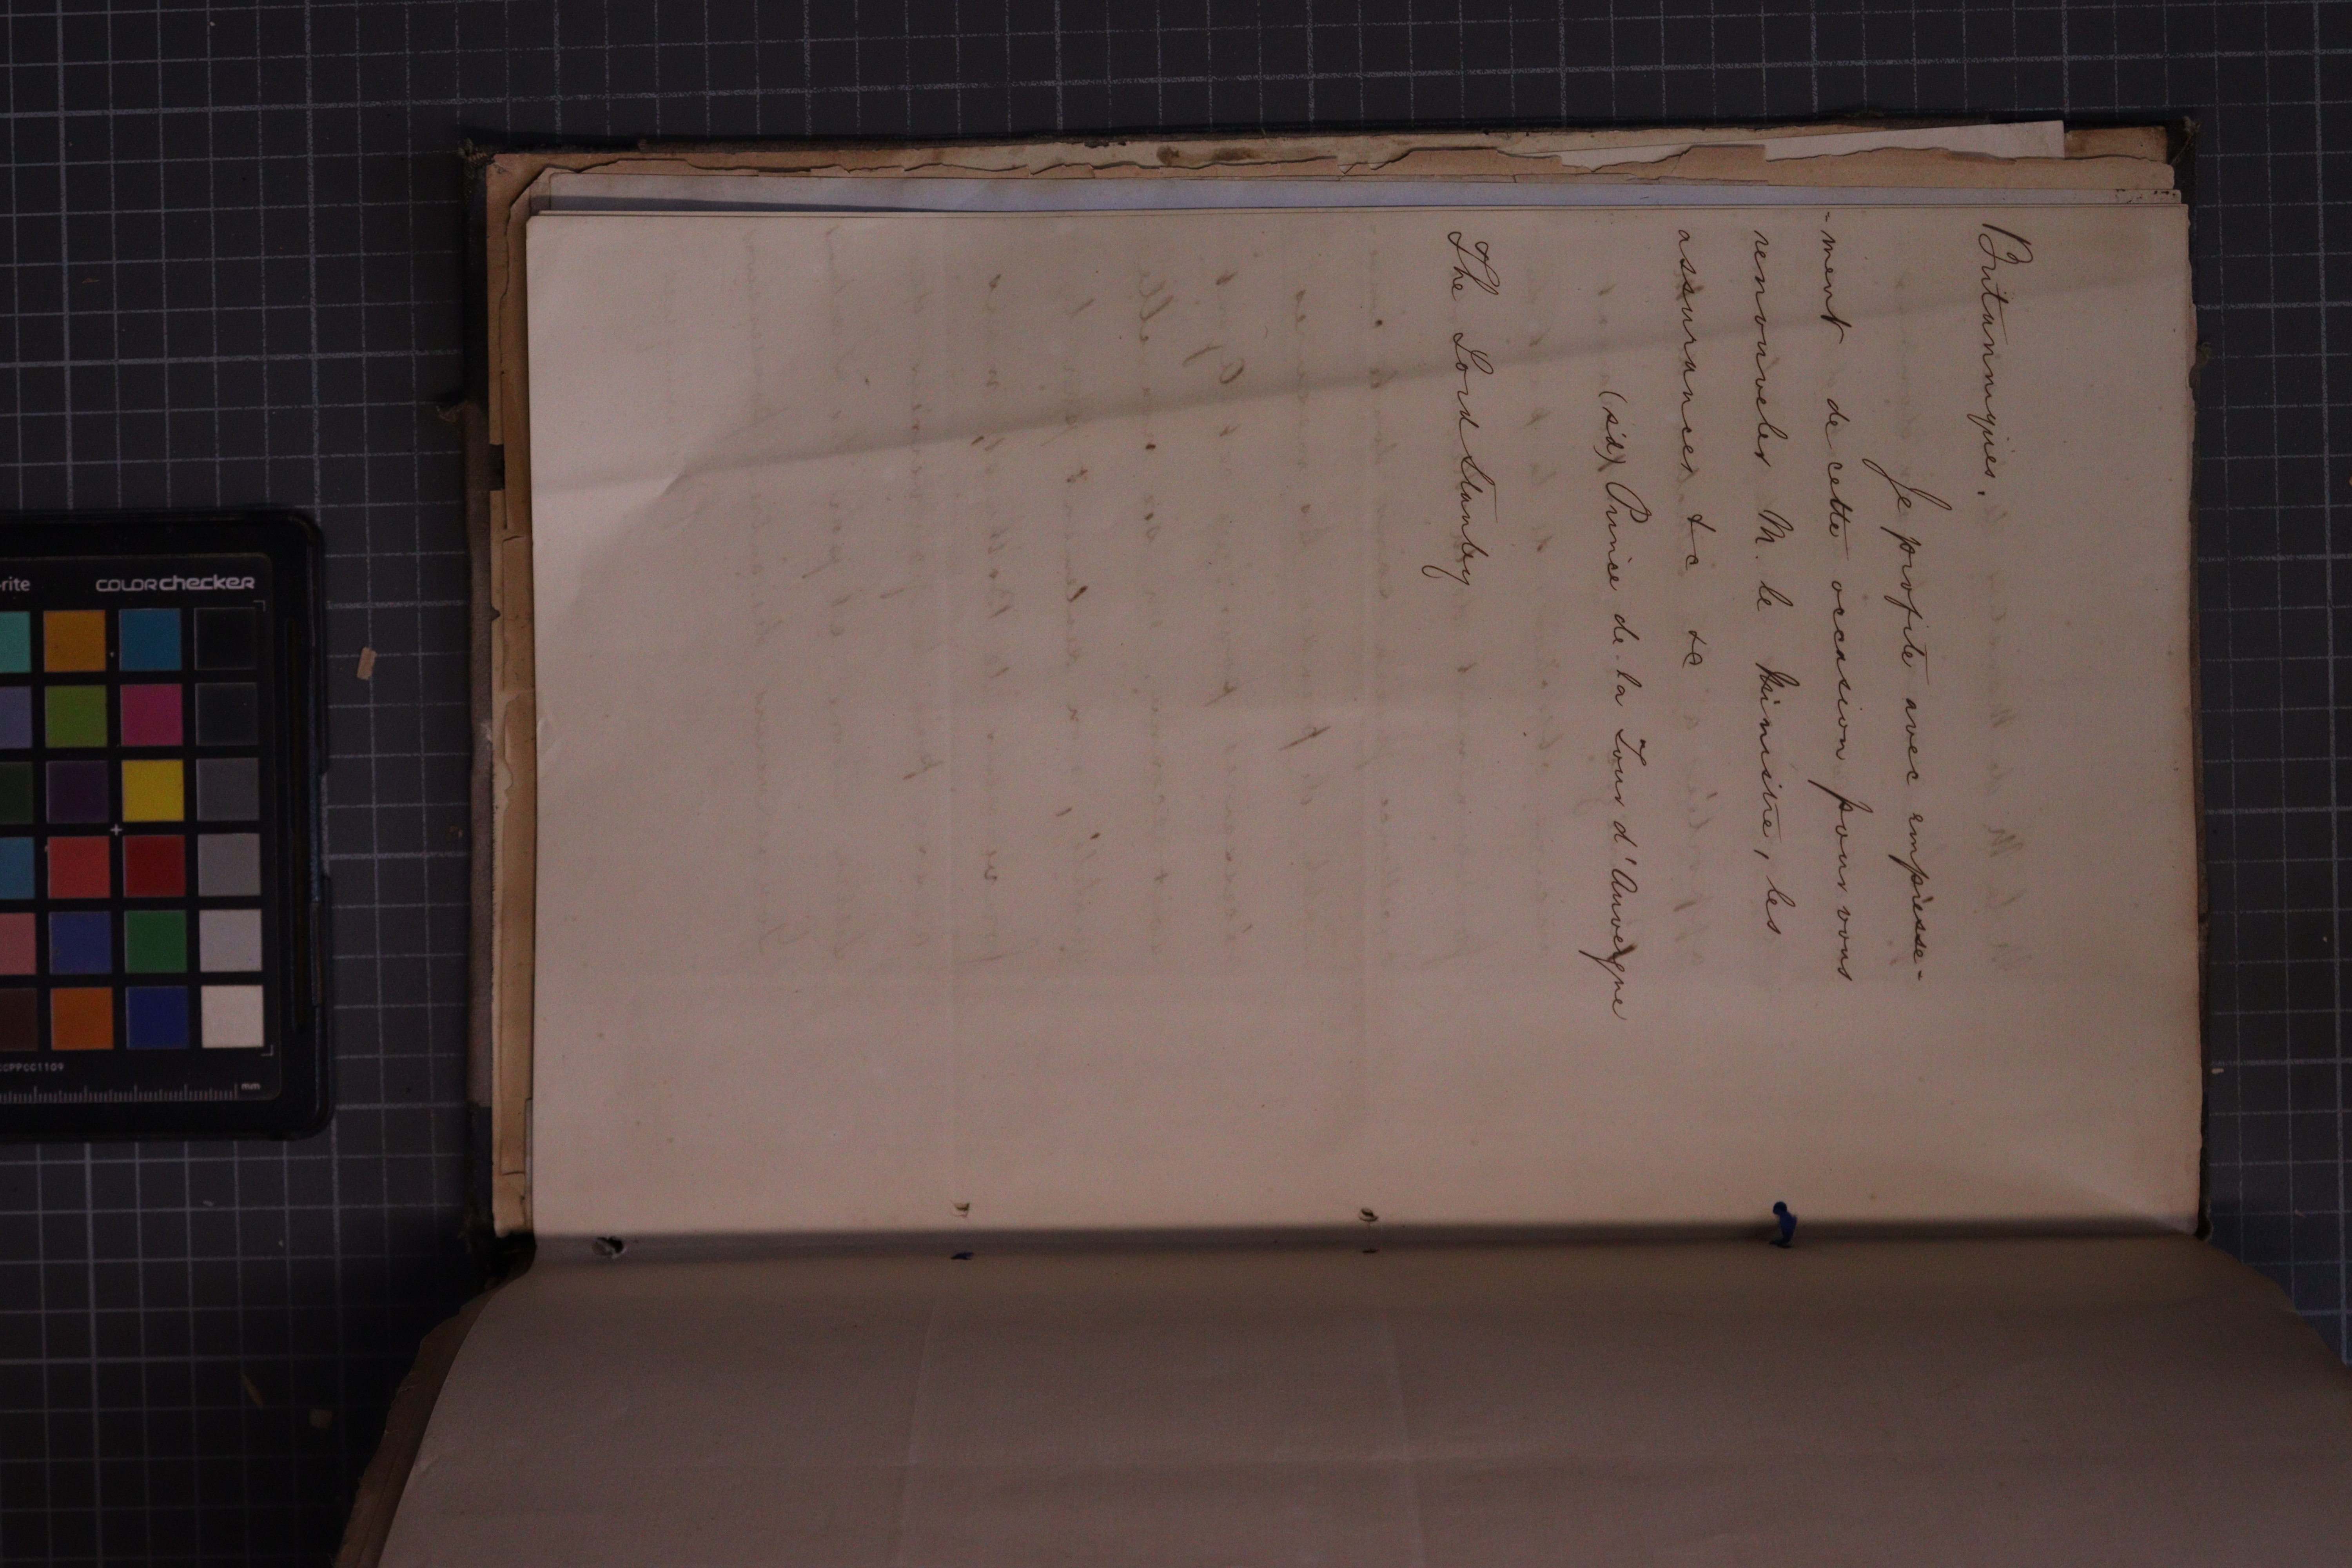 Britanniques.
Je profite avec empresse-
-ment de cette occasion pour vous
renouveler M. le Ministre, les
assurances &c &c
(sd) Prince de la Tour d'Auvergne
The Lord Stanley
rite
COLORchecker
CCPPCC1109
mm